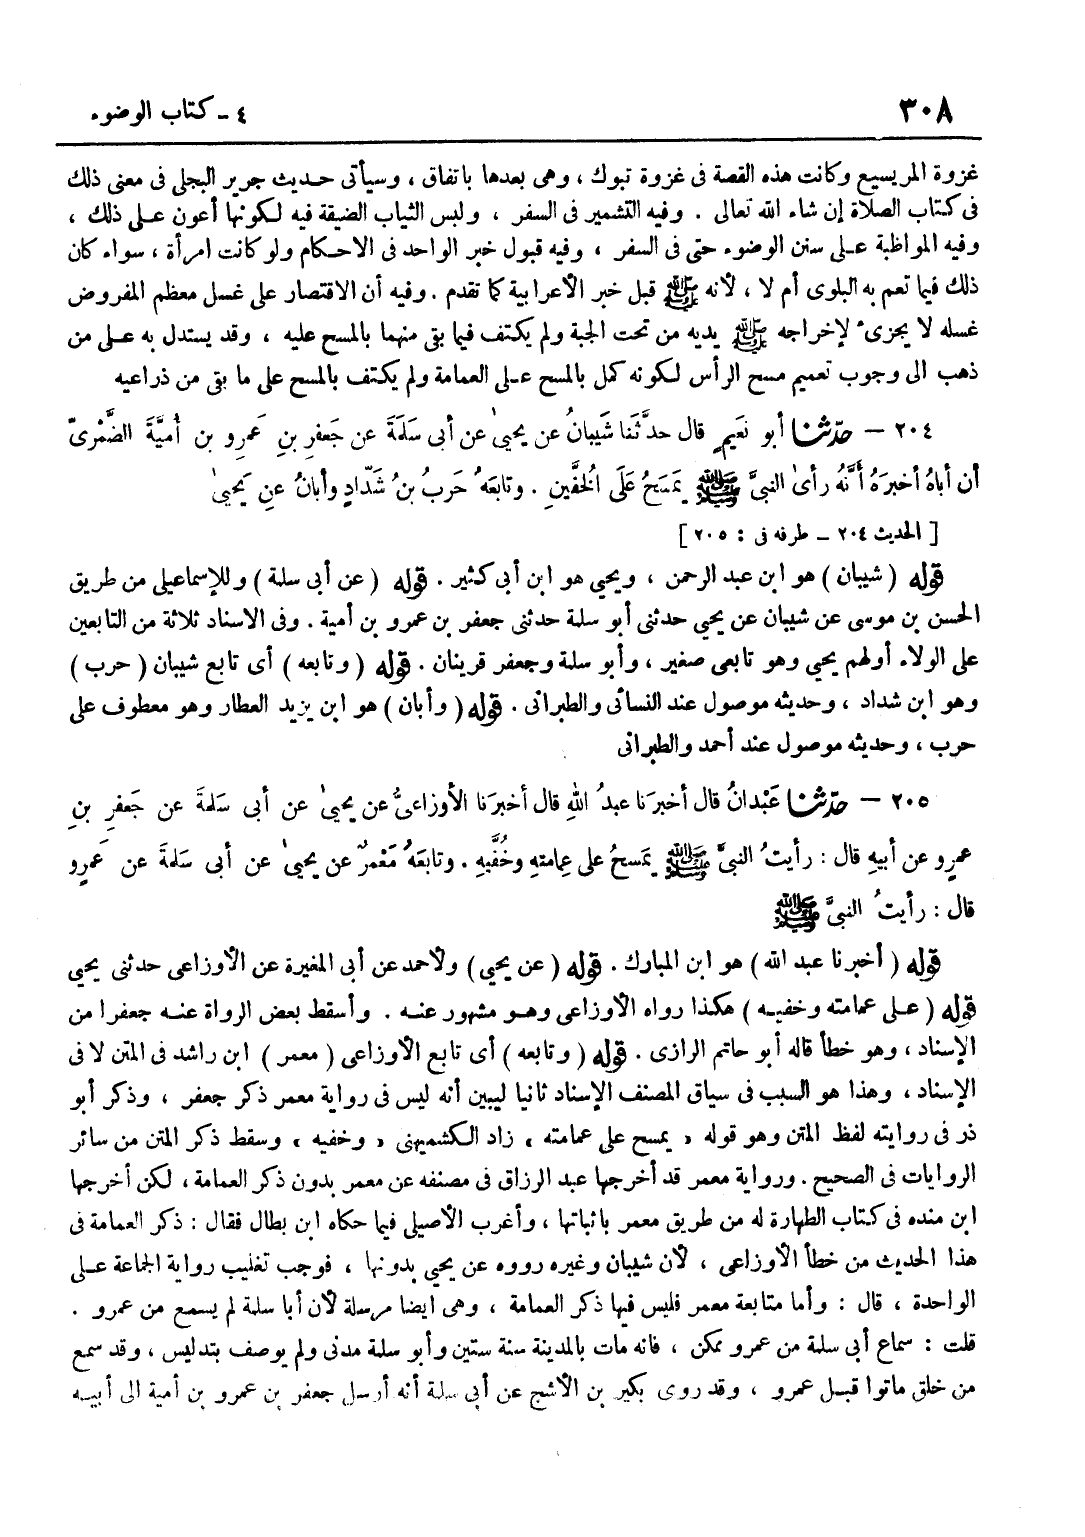 ٣٠٨
٤ - كتاب الوضوء
غزوة المريسيع وكانت هذه القصة فى غزوة تبوك ، وهى بعدها باتفاق ، وسيأتى حديث جرير البجلى فى معنى ذلك
فى كتاب الصلاة إن شاء الله تعالى . وفيه التشمير فى السفر ، ولبس الثياب الضيقة فيه لكونها أعون على ذلك ،
وفيه المواظبة على سنن الوضوء حتى فى السفر ، وفيه قبول خبر الواحد فى الاحكام ولو كانت امرأة ، سواء كان
ذلك فيما تعم به البلوى أم لا ، لأنه ﷺ قبل خبر الأعرابية كما تقدم . وفيه أن الاقتصار على غسل معظم المفروض
غسله لا يجزئ لإخراجه ﷺ يديه من تحت الجبة ولم يكتف فيما بقى منهما بالمسح عليه ، وقد يستدل به على من
ذهب الى وجوب تعميم مسح الرأس لكونه كمل بالمسح على العمامة ولم يكتف بالمسح على ما بقى من ذراعيه
٢٠٤ - حدّثنا أبو نعَيمٍ قال حدَّثَنا شَيبانُ عن يحيىٰ عن أبى سَلَمَةَ عن جَعفَرِ بنِ عَمرِو بن أُميَّةَ الضَّمْرىّ
أن أباهُ أخبرَهُ أَنَّهُ رأىٰ النبىَّ ﷺ يَمسَحُ عَلَى الخُفَّينِ . وتابعَهُ حَربُ بنُ شَدّادٍ وأبانُ عنِ يَحيىٰ
[ الحديث ٢٠٤ - طرفه فى : ٢٠٥ ]
قوله ( شيبان ) هو ابن عبد الرحمن ، ويحيى هو ابن أبى كثير . قوله ( عن أبى سلمة ) وللإسماعيلى من طريق
الحسن بن موسى عن شيبان عن يحيى حدثنى أبو سلمة حدثنى جعفر بن عمرو بن أمية . وفى الاسناد ثلاثة من التابعين
على الولاء أولهم يحيى وهو تابعى صغير ، وأبو سلمة وجعفر قرينان . قوله ( وتابعه ) أى تابع شيبان ( حرب )
وهو ابن شداد ، وحديثه موصول عند النسائى والطبرانى . قوله ( وأبان ) هو ابن يزيد العطار وهو معطوف على
حرب ، وحديثه موصول عند أحمد والطبرانى
٢٠٥ - حدّثنا عَبْدانُ قال أخبرَنا عبدُ اللهِ قال أخبرَنا الأوزاعىُّ عن يحيىٰ عن أبى سَلمةَ عن جَعفرِ بنِ
عمرٍو عن أبيهِ قال : رأيتُ النبىَّ ﷺ يَمسحُ على عِمامتهِ وخُفَّيهِ . وتابعَهُ مَعْمرٌ عن يحيىٰ عن أبى سَلمةَ عن عَمرٍو
قال : رأيتُ النبىَّ ﷺ
قوله ( أخبرنا عبد الله ) هو ابن المبارك . قوله ( عن يحيى ) ولأحمد عن أبى المغيرة عن الأوزاعى حدثنى يحيى
قوله ( على عمامته وخفيه ) هكذا رواه الأوزاعى وهو مشهور عنه . وأسقط بعض الرواة عنه جعفرا من
الإسناد ، وهو خطأ قاله أبو حاتم الرازى . قوله ( وتابعه ) أى تابع الأوزاعى ( معمر ) ابن راشد فى المتن لا فى
الإسناد ، وهذا هو السبب فى سياق المصنف الإسناد ثانيا ليبين أنه ليس فى رواية معمر ذكر جعفر ، وذكر أبو
ذر فى روايته لفظ المتن وهو قوله « يمسح على عمامته » زاد الكشميهنى « وخفيه » وسقط ذكر المتن من سائر
الروايات فى الصحيح . ورواية معمر قد أخرجها عبد الرزاق فى مصنفه عن معمر بدون ذكر العمامة ، لكن أخرجها
ابن منده فى كتاب الطهارة له من طريق معمر باثباتها ، وأغرب الأصيلى فيما حكاه ابن بطال فقال : ذكر العمامة فى
هذا الحديث من خطأ الأوزاعى ، لأن شيبان وغيره رووه عن يحيى بدونها ، فوجب تغليب رواية الجماعة على
الواحدة ، قال : وأما متابعة معمر فليس فيها ذكر العمامة ، وهى ايضا مرسلة لأن أبا سلمة لم يسمع من عمرو .
قلت : سماع أبى سلمة من عمرو ممكن ، فانه مات بالمدينة سنة ستين وأبو سلمة مدنى ولم يوصف بتدليس ، وقد سمع
من خلق ماتوا قبل عمرو ، وقد روى بكير بن الأشج عن أبى سلمة أنه أرسل جعفر بن عمرو بن أمية الى أبيه